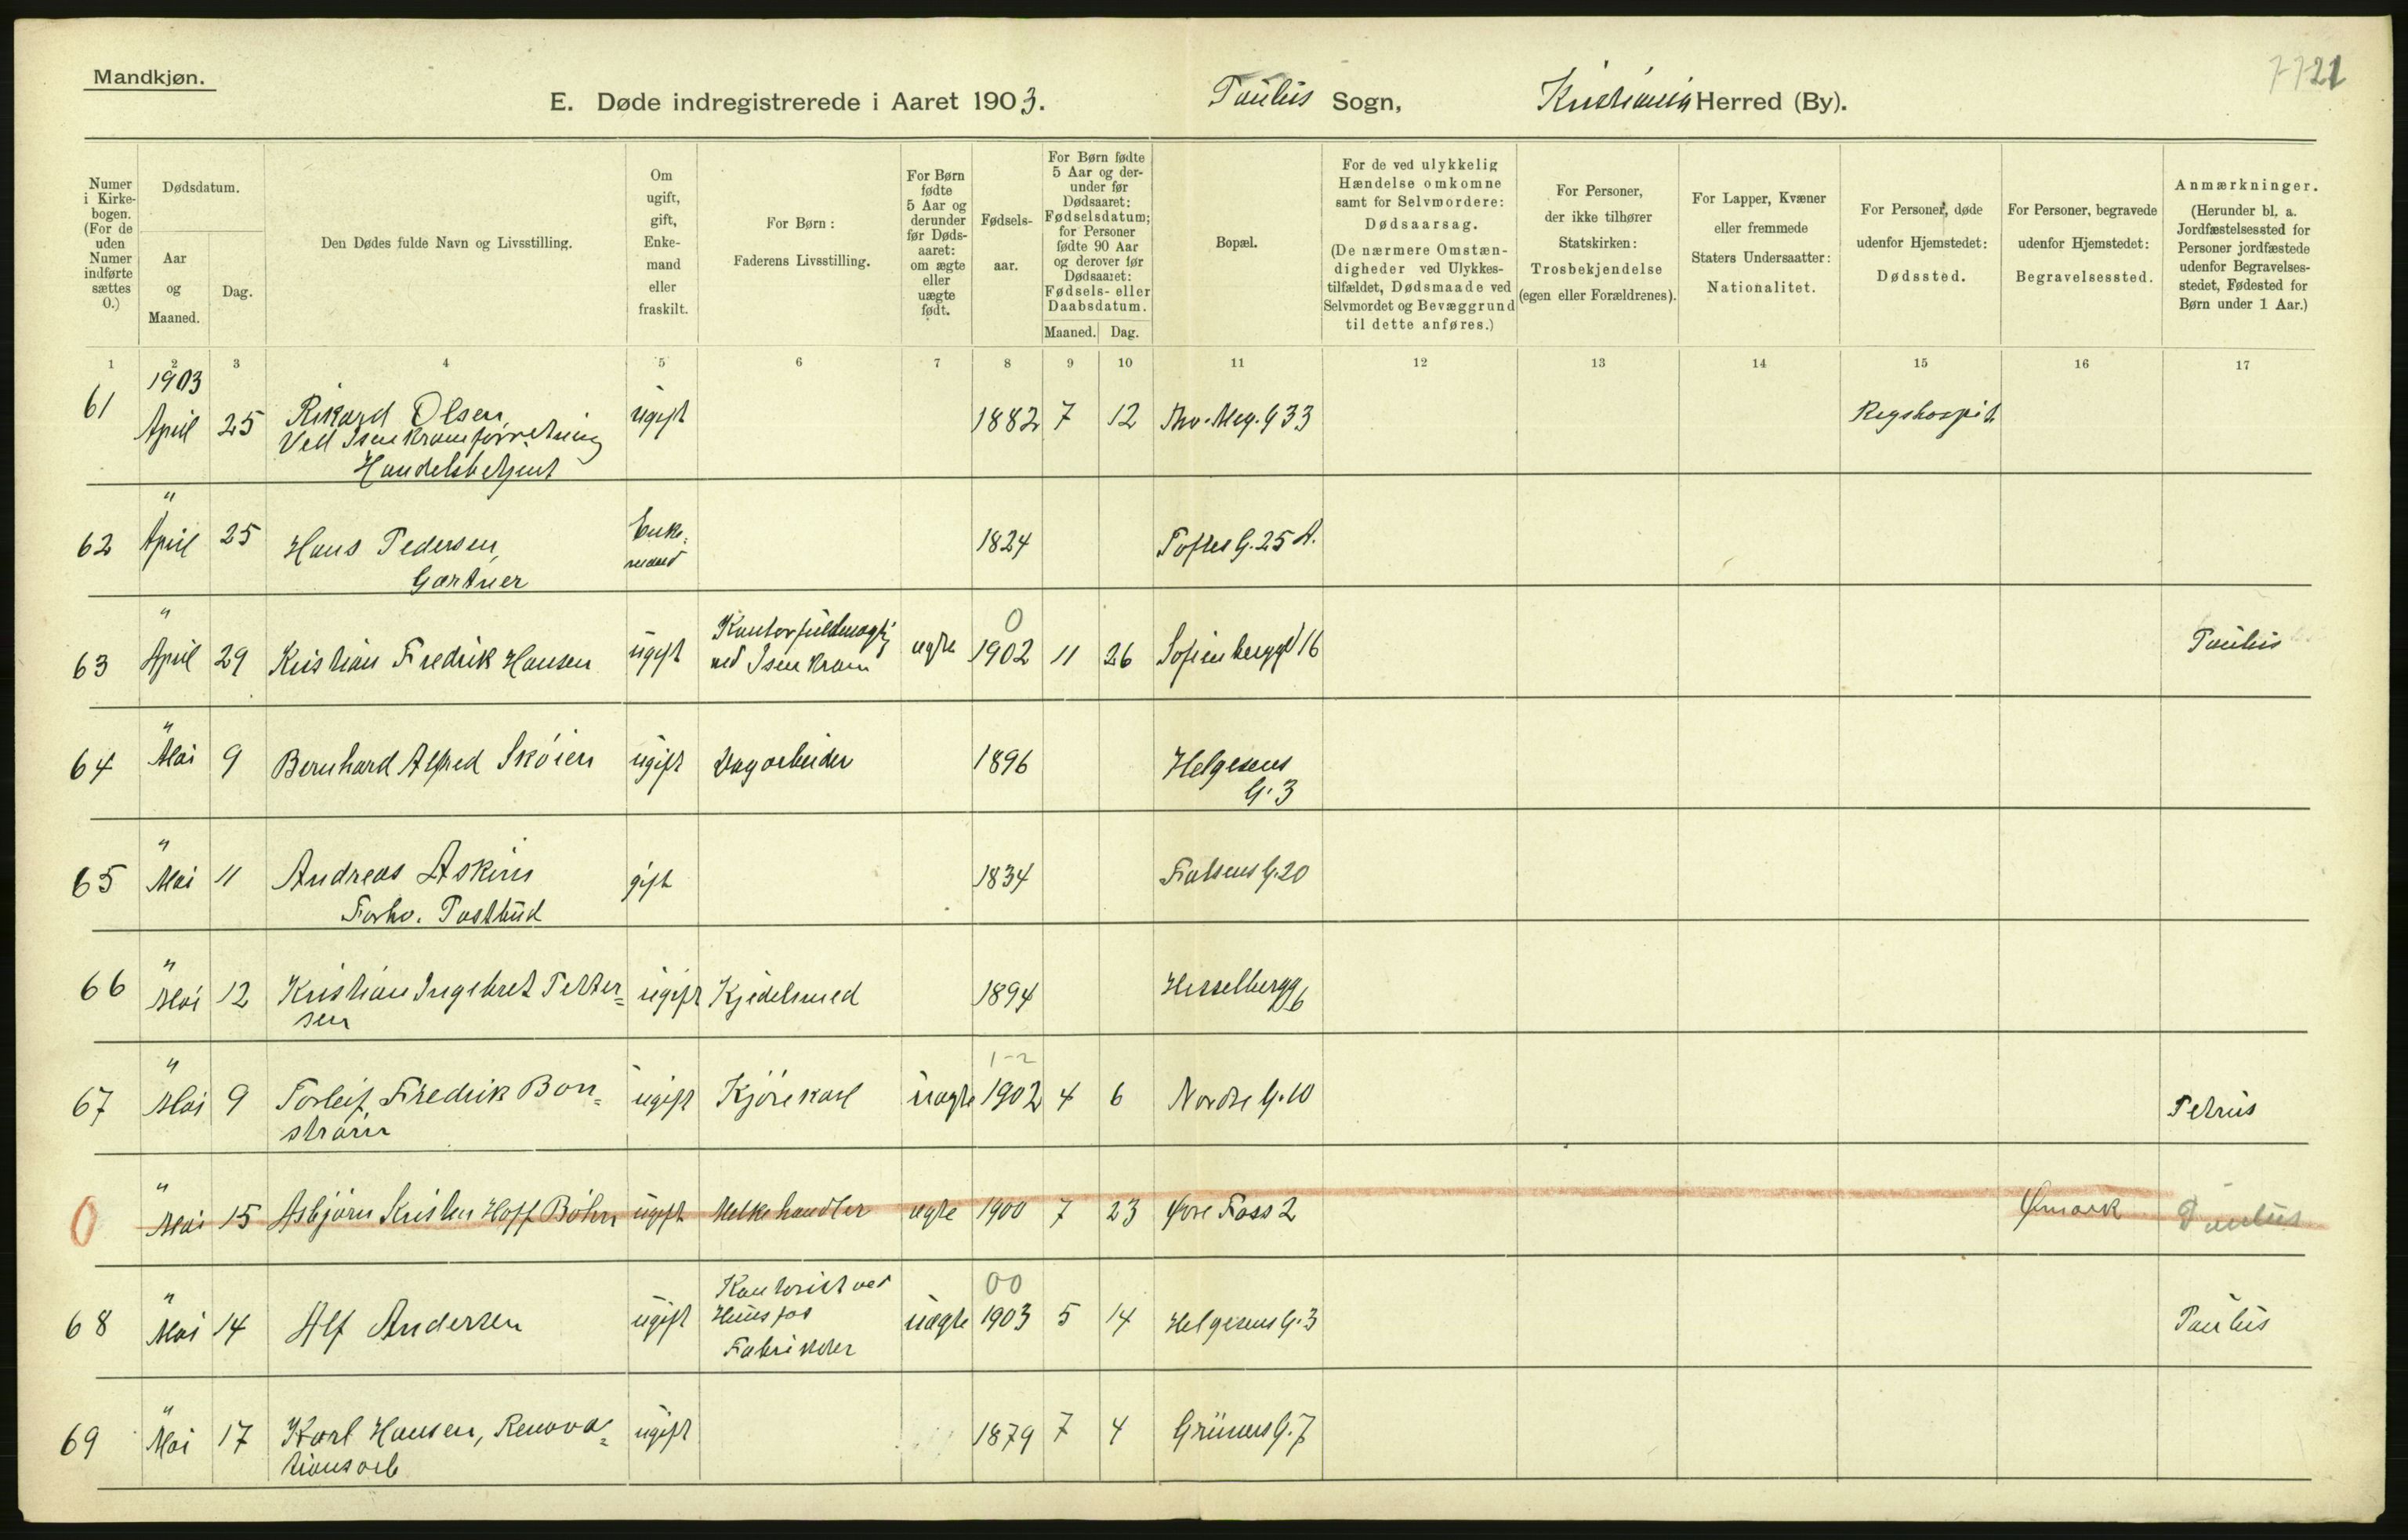 Mandkjøn.
7721
E. Døde indregistrerede i Aaret 1903. Paulus Sogn, Kristiania Herred (By).
Numer i Kirke-bogen. (For de uden Numer indførte sættes 0.)
Dødsdatum.
Aar og Maaned.
Dag.
Den Dødes fulde Navn og Livsstilling.
Om ugift, gift, Enke-mand eller fraskilt.
For Børn: Faderens Livsstilling.
For Børn fødte 5 Aar og derunder før Døds-aaret: om ægte eller uægte født.
Fødsels-aar.
For Børn fødte 5 Aar og der-under før Dødsaaret: Fødselsdatum; for Personer fødte 90 Aar og derover før Dødsaaret: Fødsels- eller Daabsdatum.
Maaned. Dag.
Bopæl.
For de ved ulykkelig Hændelse omkomne samt for Selvmordere: Dødsaarsag. (De nærmere Omstæn-digheder ved Ulykkes-tilfældet, Dødsmaade ved Selvmordet og Bevæggrund til dette anføres.)
For Personer, der ikke tilhører Statskirken: Trosbekjendelse (egen eller Forældrenes).
For Lapper, Kvæner eller fremmede Staters Undersaatter: Nationalitet.
For Personer, døde udenfor Hjemstedet: Dødssted.
For Personer, begravede udenfor Hjemstedet: Begravelsessted.
Anmærkninger. (Herunder bl. a. Jordfæstelsessted for Personer jordfæstede udenfor Begravelses-stedet, Fødested for Børn under 1 Aar.)
1 2 3 4 5 6 7 8 9 10 11 12 13 14 15 16 17
1903
61 April 25 Rikard Olsen ugift 1882 7 12 Thv. Meg. G 33 Rigshospit
Ved Isenkramforretning
Handelsbetjent
"
62 April 25 Hans Pedersen, Enke-mand 1824 Toftes G. 25 A.
Gartner
"
63 April 29 Kristian Fredrik Hansen ugift Kontorfuldmægtig ved Isenkram ægte 0 1902 11 26 Sofienbergg 16 Paulus
"
64 Mai 9 Bernhard Alfred Skøien ugift Dagarbeider 1896 Helgesens G. 3
"
65 Mai 11 Andreas Askim gift 1834 Falsens G. 20
Forhv. Postbud
"
66 Mai 12 Kristian Ingebret Petter= ugift Kjedelsmed 1894 Hesselbergg 6
sen
"
67 Mai 9 Torleif Fredrik Bon= ugift Kjørekarl uægte 1-2 1902 4 6 Nordre G. 10 Petrus
strøm
"
0 Mai 15 Asbjørn Kristen Hoff Bøhn ugift Melkehandler ægte 1900 7 23 Øvre Foss 2 Ømark Paulus
"
68 Mai 14 Alf Andersen ugift Kontorist ved Hunsfos Fabrikker uægte 00 1903 5 14 Helgesens G. 3 Paulus
"
69 Mai 17 Karl Hansen, Renova= ugift 1879 7 4 Grüners G. 7
tionsarb